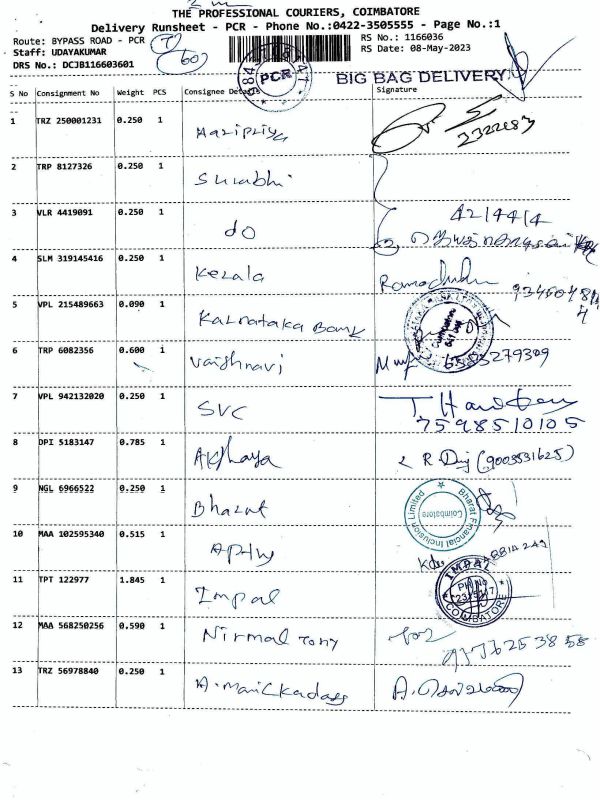 THE PROFESSIONAL COURIERS, COIMBATORE
Delivery Runsheet - PCR - Phone No.:0422-3505555 - Page No.:1
Route: BYPASS ROAD - PCR
RS No.: 1166036
Staff: UDAYAKUMAR
RS Date: 08-May-2023
DRS No.: DCJB116603601
60
PCR
BIG BAG DELIVERY
S No Consignment No Weight PCS Consignee Details Signature
1 TRZ 250001231 0.250 1 Haripriya
2322283
2 TRP 8127326 0.250 1 Surabhi
3 VLR 4419091 0.250 1 do 4214414
4 SLM 319145416 0.250 1 Kerala
5 VPL 215489663 0.090 1 Karnataka Bank
6 TRP 6082356 0.600 1 Vaishnavi
7 VPL 942132020 0.250 1 SVC
7598510105
8 DPI 5183147 0.785 1 Akshaya R (9003531625)
9 NGL 6966522 0.250 1 Bharat
Bharat Financial Inclusion Limited
Coimbatore
10 MAA 102595340 0.515 1
11 TPT 122977 1.845 1 Impal
IMPAL
PH NO
COIMBATORE
12 MAA 568250256 0.590 1 Nirmal Tony
13 TRZ 56978840 0.250 1 A. Manickadass A.